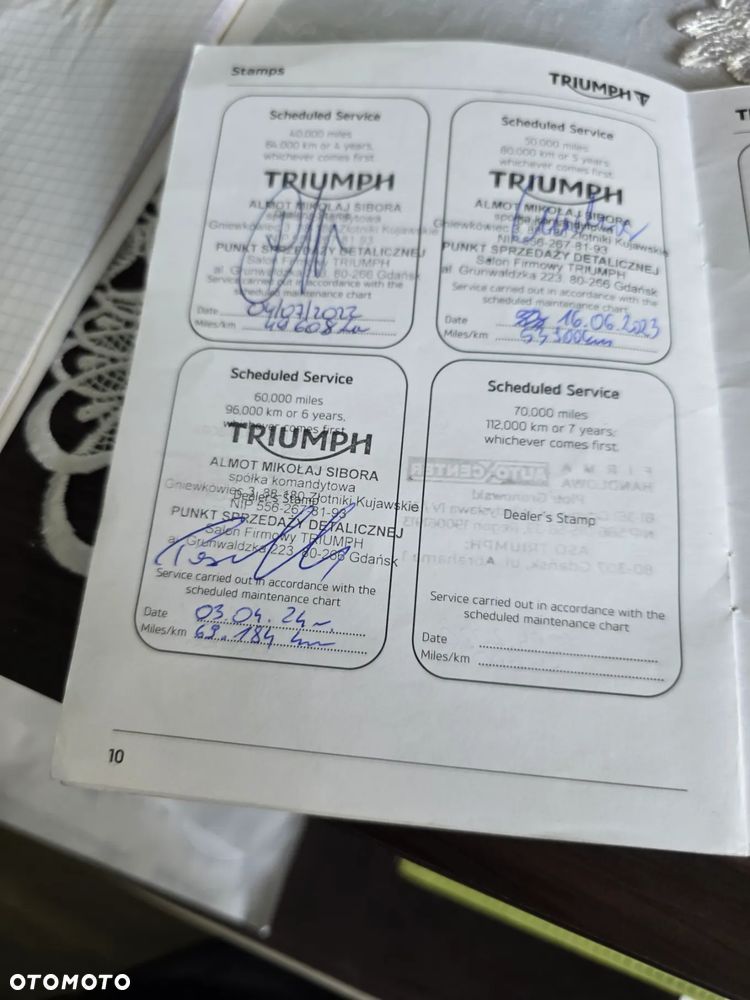 Stamps
TRIUMPH
Scheduled Service
40,000 miles
64,000 km or 4 years,
whichever comes first
TRIUMPH
ALMOT MIKOŁAJ SIBORA
spółka komandytowa
Gniewkowiec 3, 88-180 Złotniki Kujawskie
NIP 556-267-81-93
PUNKT SPRZEDAŻY DETALICZNEJ
Salon Firmowy TRIUMPH
al. Grunwaldzka 223, 80-266 Gdańsk
Service carried out in accordance with the
scheduled maintenance chart
Date 04/07/2022
Miles/km
Scheduled Service
50,000 miles
80,000 km or 5 years,
whichever comes first
TRIUMPH
ALMOT MIKOŁAJ SIBORA
spółka komandytowa
Gniewkowiec 3, 88-180 Złotniki Kujawskie
NIP 556-267-81-93
PUNKT SPRZEDAŻY DETALICZNEJ
Salon Firmowy TRIUMPH
al. Grunwaldzka 223, 80-266 Gdańsk
Service carried out in accordance with the
scheduled maintenance chart
Date 16.06.2023
Miles/km
Scheduled Service
60,000 miles
96,000 km or 6 years,
whichever comes first
TRIUMPH
ALMOT MIKOŁAJ SIBORA
spółka komandytowa
Gniewkowiec 3, 88-180 Złotniki Kujawskie
Dealer's Stamp
NIP 556-267-81-93
PUNKT SPRZEDAŻY DETALICZNEJ
Salon Firmowy TRIUMPH
al. Grunwaldzka 223, 80-266 Gdańsk
Service carried out in accordance with the
scheduled maintenance chart
Date 03.04.24r.
Miles/km 69.184 km
Scheduled Service
70,000 miles
112,000 km or 7 years,
whichever comes first.
Dealer's Stamp
Service carried out in accordance with the
scheduled maintenance chart
Date
Miles/km
10
OTOMOTO